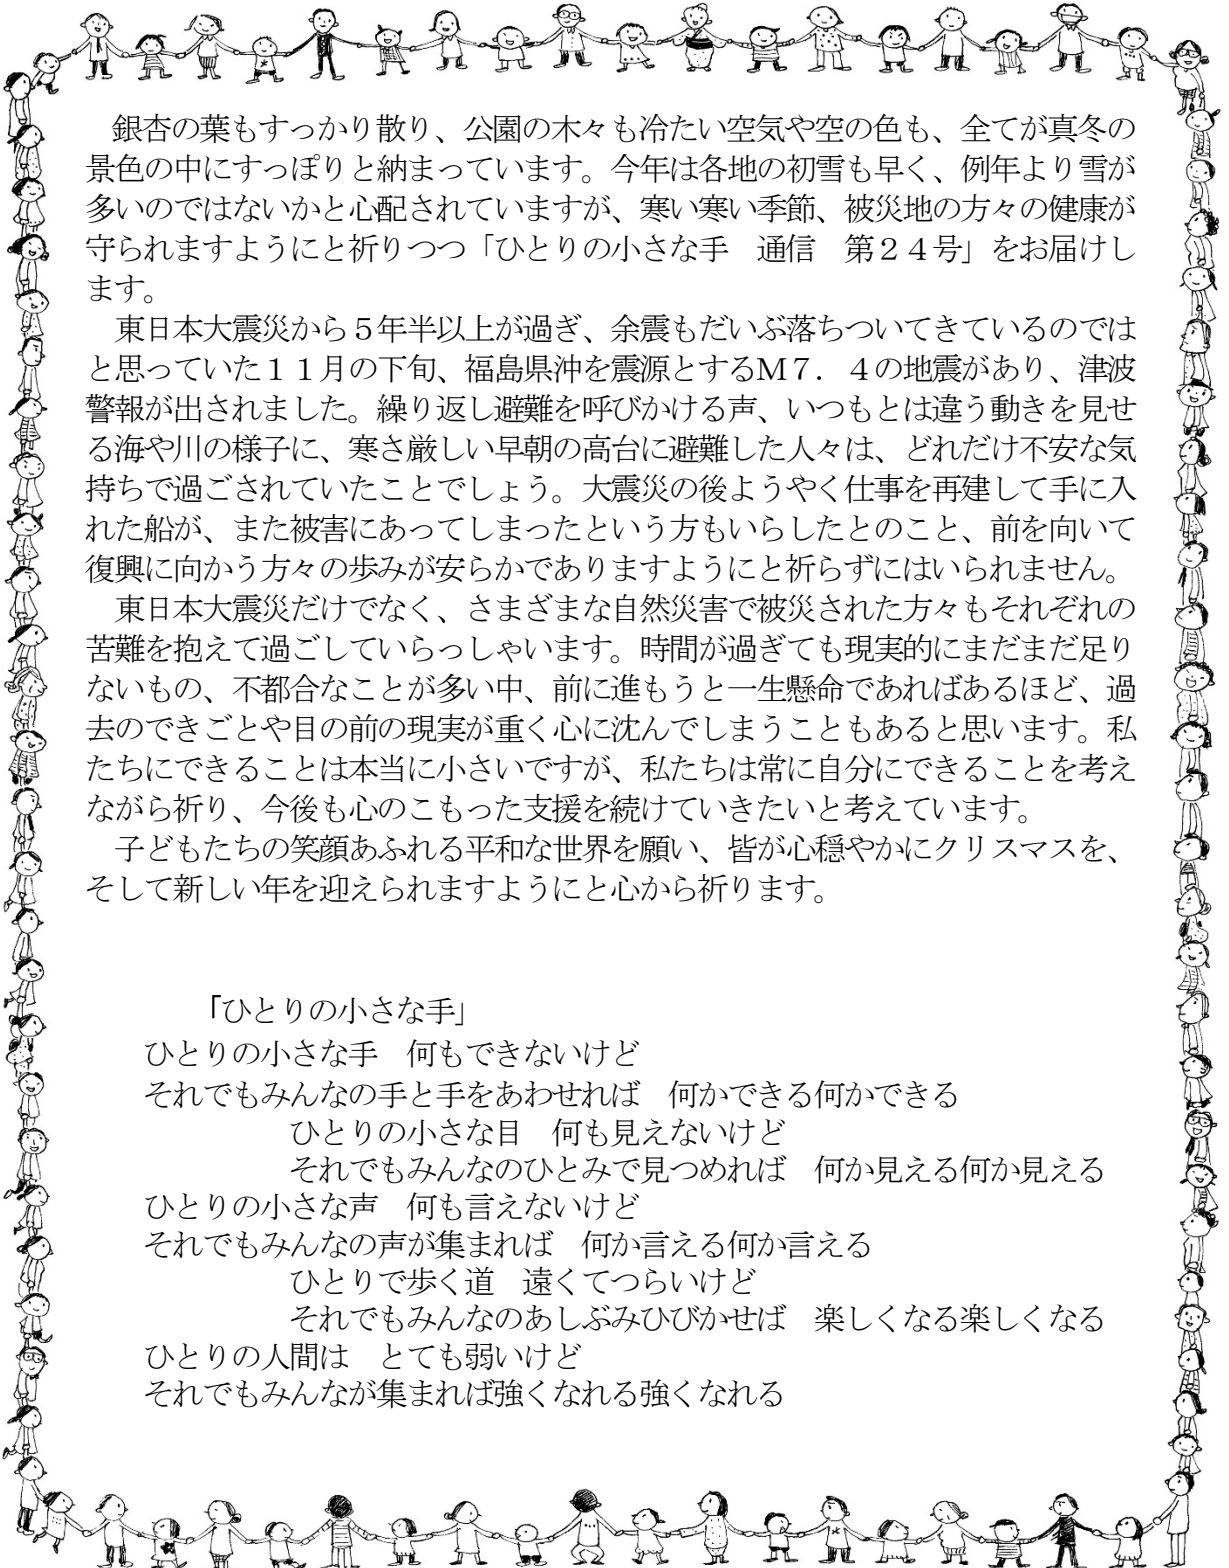 銀杏の葉もすっかり散り、公園の木々も冷たい空気や空の色も、全てが真冬の
景色の中にすっぽりと納まっています。今年は各地の初雪も早く、例年より雪が
多いのではないかと心配されていますが、寒い寒い季節、被災地の方々の健康が
守られますようにと祈りつつ「ひとりの小さな手　通信　第２４号」をお届けし
ます。
東日本大震災から５年半以上が過ぎ、余震もだいぶ落ちついてきているのでは
と思っていた１１月の下旬、福島県沖を震源とするM７．４の地震があり、津波
警報が出されました。繰り返し避難を呼びかける声、いつもとは違う動きを見せ
る海や川の様子に、寒さ厳しい早朝の高台に避難した人々は、どれだけ不安な気
持ちで過ごされていたことでしょう。大震災の後ようやく仕事を再建して手に入
れた船が、また被害にあってしまったという方もいらしたとのこと、前を向いて
復興に向かう方々の歩みが安らかでありますようにと祈らずにはいられません。
東日本大震災だけでなく、さまざまな自然災害で被災された方々もそれぞれの
苦難を抱えて過ごしていらっしゃいます。時間が過ぎても現実的にまだまだ足り
ないもの、不都合なことが多い中、前に進もうと一生懸命であればあるほど、過
去のできごとや目の前の現実が重く心に沈んでしまうこともあると思います。私
たちにできることは本当に小さいですが、私たちは常に自分にできることを考え
ながら祈り、今後も心のこもった支援を続けていきたいと考えています。
子どもたちの笑顔あふれる平和な世界を願い、皆が心穏やかにクリスマスを、
そして新しい年を迎えられますようにと心から祈ります。
「ひとりの小さな手」
ひとりの小さな手　何もできないけど
それでもみんなの手と手をあわせれば　何かできる何かできる
ひとりの小さな目　何も見えないけど
それでもみんなのひとみで見つめれば　何か見える何か見える
ひとりの小さな声　何も言えないけど
それでもみんなの声が集まれば　何か言える何か言える
ひとりで歩く道　遠くてつらいけど
それでもみんなのあしぶみひびかせば　楽しくなる楽しくなる
ひとりの人間は　とても弱いけど
それでもみんなが集まれば強くなれる強くなれる